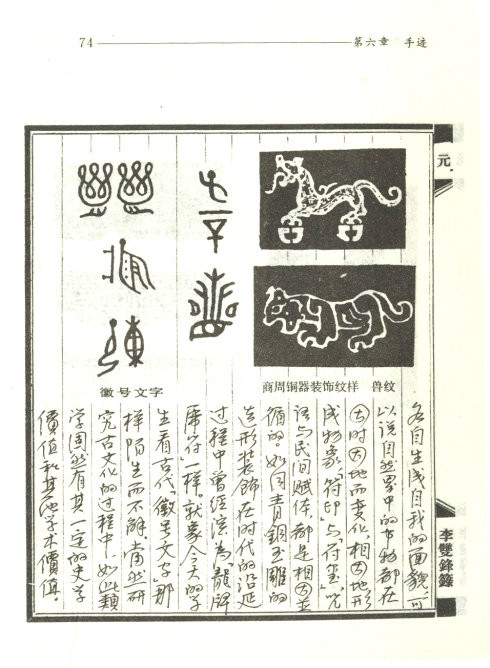 74
第六章 手迹
元
商周铜器装饰纹样 兽纹
徽号文字
各自生成自我的面貌,可
以说自然界中的事物都在
因时因地而变化,相因地形
成物象,符印与"符玺"
语与民间赋体,都是相因并
循的。如同青铜玉雕的
造形装饰在时代的沿延
过程中曾经演为龍牌
虎符一样。就象今天的学
生看古代"徽号文字"那
样陌生而不解,当然研
究古文化的过程中如此類
学固然有其一定的史学
價值和其他学术價值
李雙鋒籙